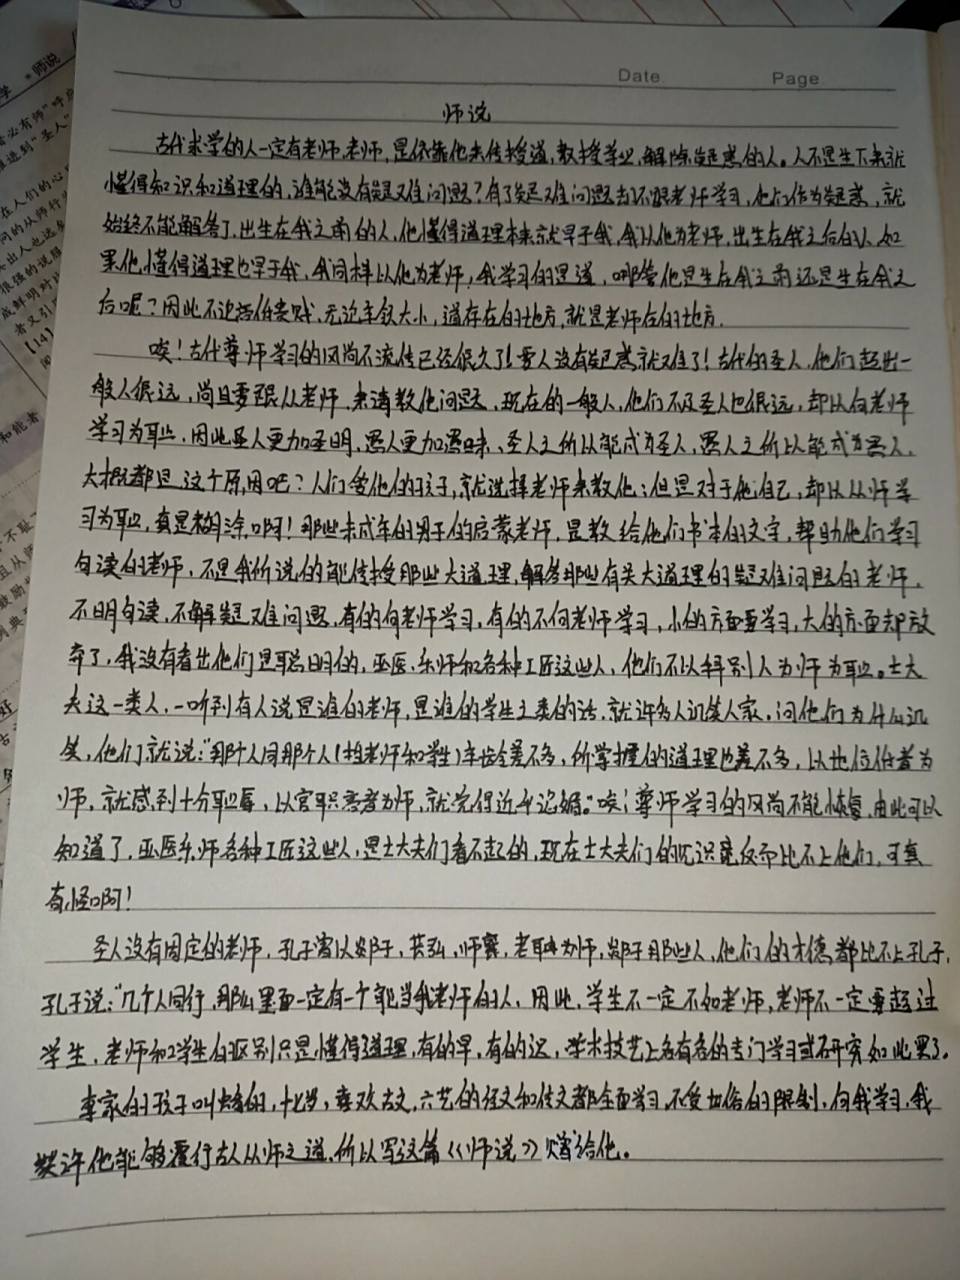 Date Page
师说
古代求学的人一定有老师.老师,是依靠他来传授道,教授学业,解除疑惑的人。人不是生下来就
懂得知识和道理的,谁能没有疑难问题?有了疑难问题却不跟老师学习,他们作为疑惑,就
始终不能解答了.出生在我之前的人,他懂得道理本来就早于我,我从他为老师,出生在我之后的人,如
果他懂得道理也早于我,我同样以他为老师,我学习的是道,哪管他是生在我之前还是生在我之
后呢?因此不论高低贵贱,无论年纪大小,道存在的地方,就是老师在的地方.
唉!古代尊师学习的风尚不流传已经很久了!要人没有疑惑就难了!古代的圣人,他们超出一
般人很远,尚且要跟从老师,来请教他问题,现在的一般人,他们不及圣人也很远,却以向老师
学习为耻,因此圣人更加圣明,愚人更加愚昧、圣人之所以能成为圣人,愚人之所以能成为愚人,
大概都是这个原因吧?人们爱他的孩子,就选择老师来教他;但是对于他自己,却以从师学
习为耻,真是糊涂啊!那些未成年的男子的启蒙老师,是教给他们书本的文字,帮助他们学习
句读的老师,不是我所说的能传授那些大道理,解答那些有关大道理的疑难问题的老师.
不明句读,不解疑难问题,有的向老师学习,有的不向老师学习,小的方面要学习,大的方面却放
弃了,我没有看出他们是聪明的,巫医、乐师和各种工匠这些人,他们不以拜别人为师为耻。士大
夫这一类人,一听到有人说是谁的老师,是谁的学生之类的话,就许多人讥笑人家,问他们为什么讥
笑,他们就说:"那个人同那个人(指老师和学生)年龄差不多,所掌握的道理也差不多,以地位低者为
师,就感到十分耻辱,以官职高者为师,就觉得近乎谄媚。"唉!尊师学习的风尚不能恢复,由此可以
知道了,巫医乐师各种工匠这些人,是士大夫们看不起的,现在士大夫们的见识竟反而比不上他们,可真
奇怪啊!
圣人没有固定的老师,孔子曾以郯子,苌弘,师襄,老聃为师,郯子那些人,他们的才德都比不上孔子,
孔子说:"几个人同行,那么里面一定有一个能当我老师的人,因此,学生不一定不如老师,老师不一定要超过
学生,老师和学生的区别只是懂得道理,有的早,有的迟,学术技艺上各有各的专门学习或研究如此罢了。
李家的孩子叫蟠的,十七岁,喜欢古文,六艺的经文和传文都全面学习,不受世俗的限制,向我学习,我
赞许他能够履行古人从师之道,所以写这篇《师说》赠给他。